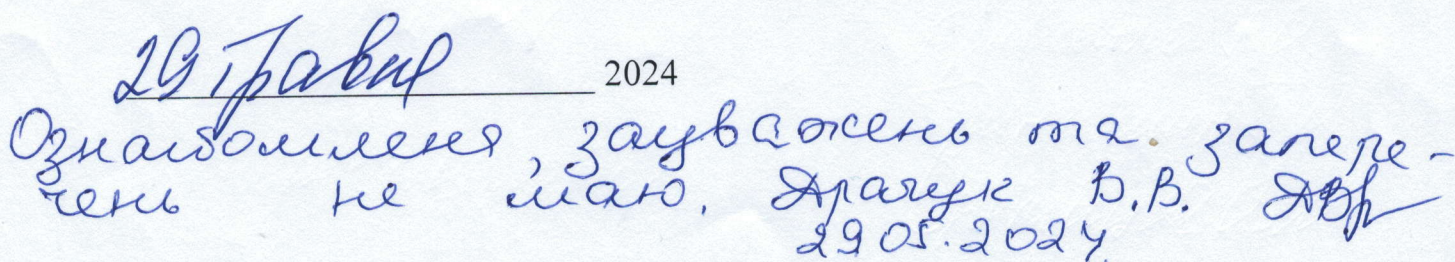 29 травня 2024
Ознайомлена, зауважень та запере-
чень не маю. Драчук В.В.
29.05.2024